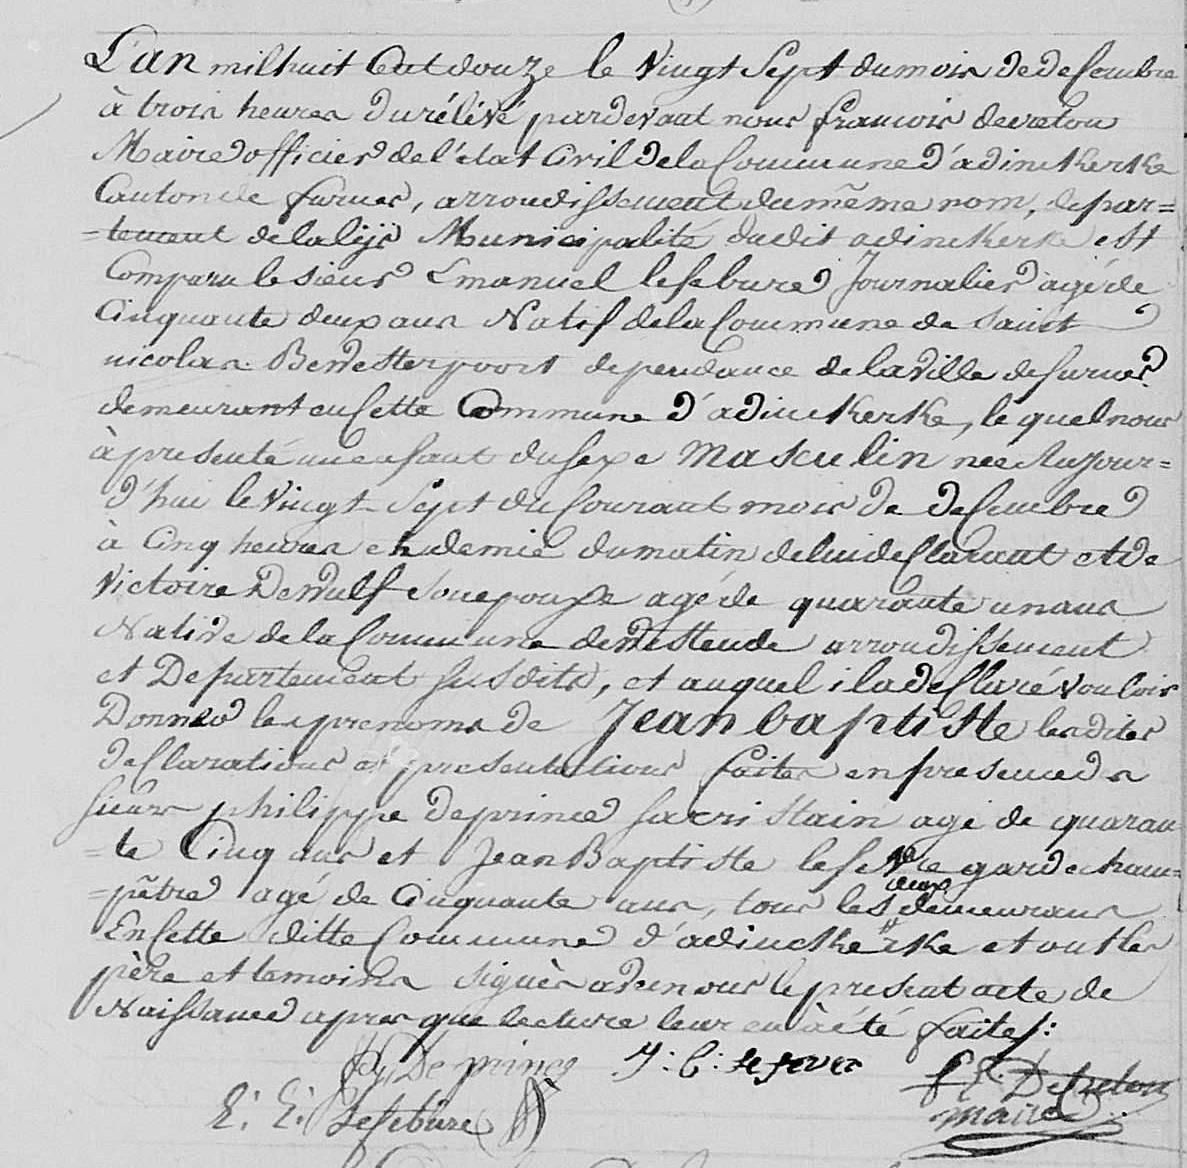 L'an mil huit Cent douze le Vingt Sept du mois de deCembre
à trois heures du rélévé pardevant nous francois devreton
Maire officier de l'état Civil de la Commune d'adinckerke
Canton de furnes, arroudissement du même nom, depar=
=tement de la lijs Municipalité dudit adinckerke est
Comparu le sieur Emanuel lefebure Journalier agé de
Cinquante deux ans Natif de la Commune de Saint
nicolas Bewesterpoort dependance de la Ville de furnes
demeurant en Cette Commune d'adinckerke, le quel nous
à presenté un enfant du sexe Masculin neé Aujour=
d'hui le Vingt Sept du Courant mois de deCembre
à Cinq heures et demie du matin de lui deClarant et de
Victoire Dewulf son epouse agé de quarante un ans
Native de la Commune de westende arroudissement
et Departement susdits, et auquel il a deClaré vouloir
Donner les prenoms de Jean baptiste les dites
deClarations et presentations faites en presence des
sieurs philippe deprince sacristain agé de quaran
=te Cinq ans et Jean Baptiste lefevre garde cham=
=pêtre agé de Cinquante ans, tous les deux demeurans
En Cette ditte Commune d'adinckerke et ont les
père et temoins signès avec nous le present acte de
Naissance apres que lecture leur en à été faites:
De prince J: B: Lefever
E: E: Lefebure maire